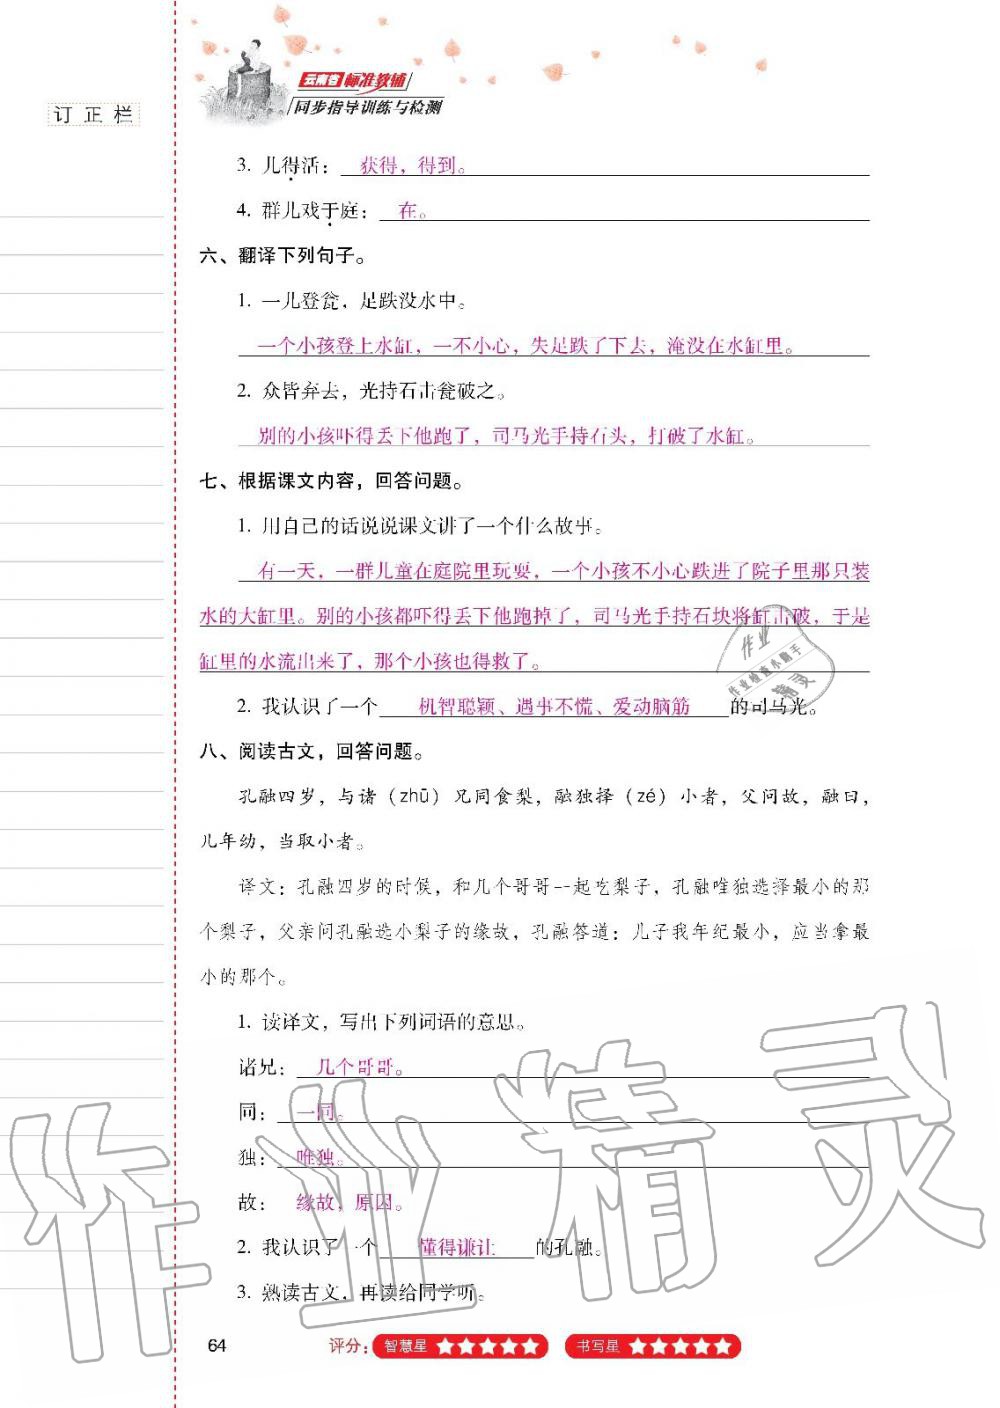 云南省标准教辅
同步指导训练与检测
订正栏
3. 儿得活： 获得，得到。
4. 群儿戏于庭： 在。
六、翻译下列句子。
1. 一儿登瓮，足跌没水中。
一个小孩登上水缸，一不小心，失足跌了下去，淹没在水缸里。
2. 众皆弃去，光持石击瓮破之。
别的小孩吓得丢下他跑了，司马光手持石头，打破了水缸。
七、根据课文内容，回答问题。
1. 用自己的话说说课文讲了一个什么故事。
有一天，一群儿童在庭院里玩耍，一个小孩不小心跌进了院子里那只装
水的大缸里。别的小孩都吓得丢下他跑掉了，司马光手持石块将缸击破，于是
缸里的水流出来了，那个小孩也得救了。
2. 我认识了一个 机智聪颖、遇事不慌、爱动脑筋 的司马光。
八、阅读古文，回答问题。
孔融四岁，与诸（zhū）兄同食梨，融独择（zé）小者，父问故，融曰，
儿年幼，当取小者。
译文：孔融四岁的时候，和几个哥哥一起吃梨子，孔融唯独选择最小的那
个梨子，父亲问孔融选小梨子的缘故，孔融答道：儿子我年纪最小，应当拿最
小的那个。
1. 读译文，写出下列词语的意思。
诸兄： 几个哥哥。
同： 一同。
独： 唯独。
故： 缘故，原因。
2. 我认识了一个 懂得谦让 的孔融。
3. 熟读古文，再读给同学听。
64
评分：智慧星 ★★★★★ 书写星 ★★★★★
作业精灵